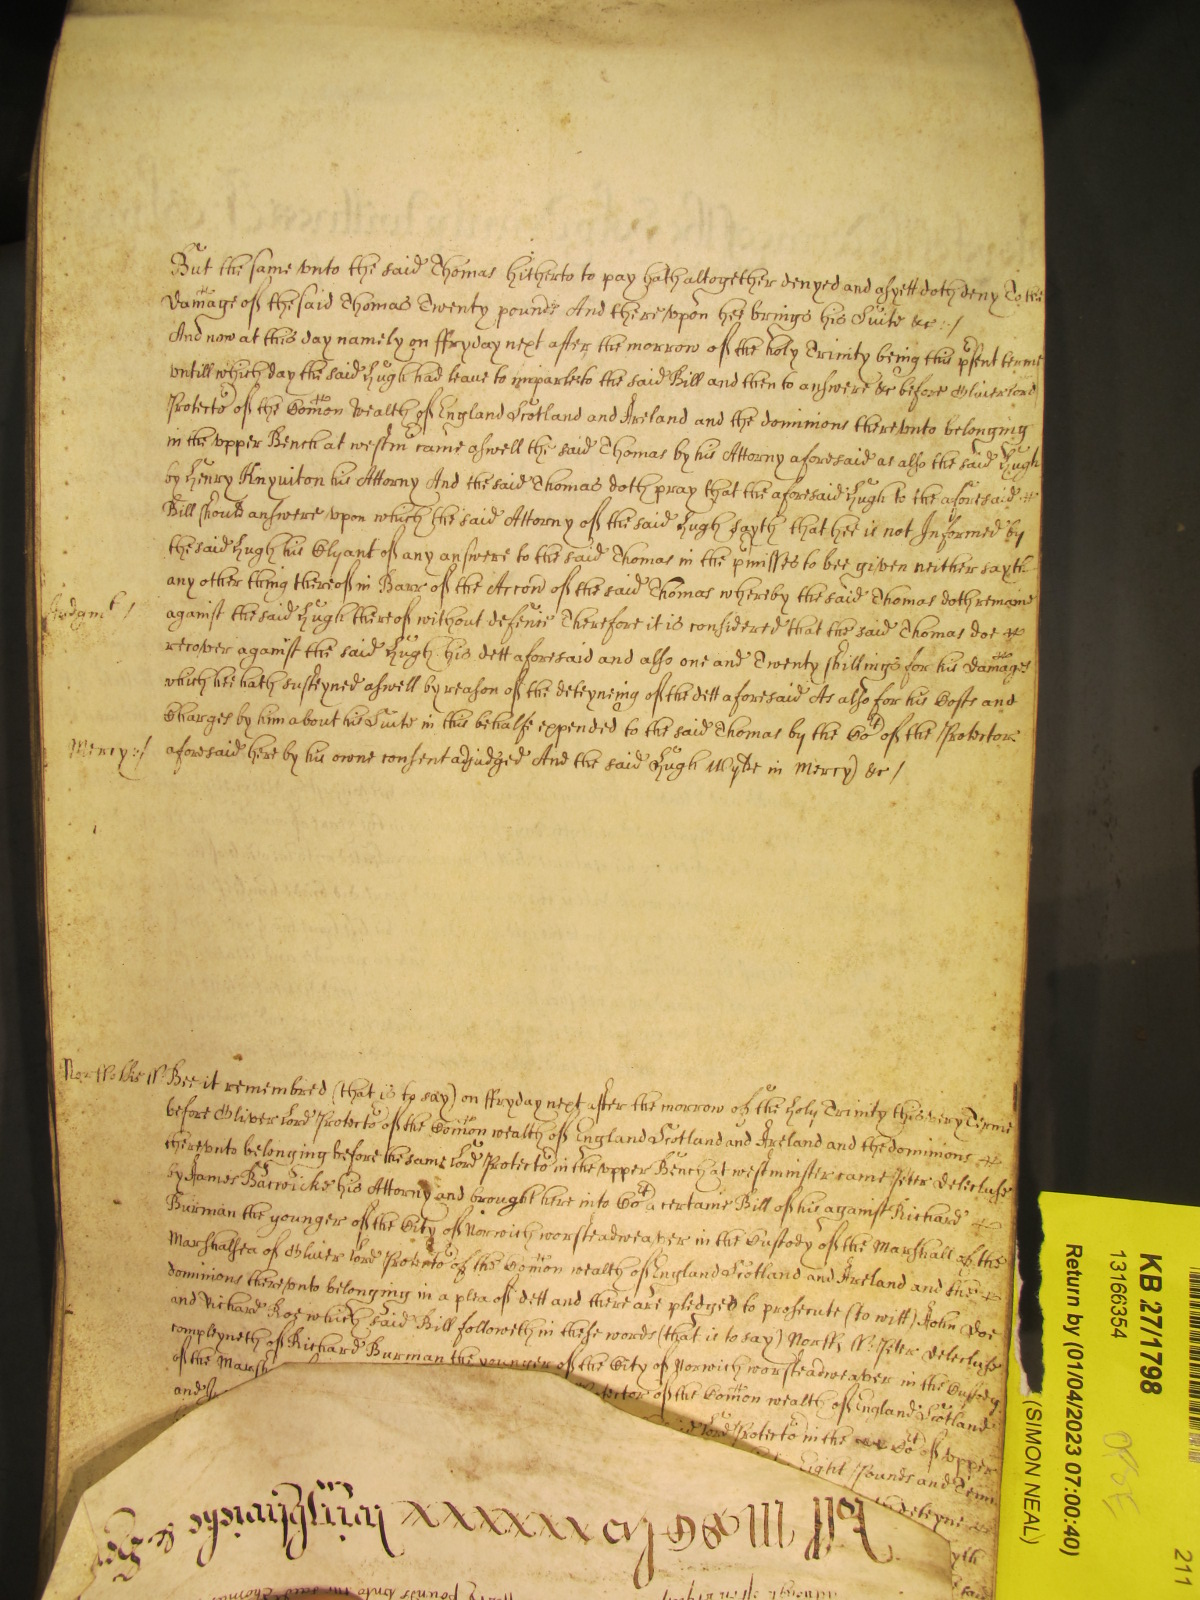 But the same vnto the said Thomas hitherto to pay hath altogether denyed and as yett doth deny To the
damage of the said Thomas Twenty pounds And there vpon hee brings his Suite &c :/
And now at this day namely on ffryday next after the morrow of the holy Trinity being this psent terme
vntill which day the said Hugh had leave to imparle to the said Bill and then to answere &c before Oliver Lord
Protector of the Comon wealth of England Scotland and Ireland and the dominions therevnto belonging
in the vpper Bench at westm came aswell the said Thomas by his Attorny aforesaid as also the said Hugh
by Henry Knyuiton his Attorny And the said Thomas doth pray that the aforesaid Hugh to the aforesaid
Bill should answere vpon which the said Attorny of the said Hugh sayth that hee is not Informed by
the said Hugh his Clyant of any answere to the said Thomas in the pmisses to bee given neither sayth
any other thing thereof in Barr of the Accon of the said Thomas whereby the said Thomas doth remayne
Judgmt / against the said Hugh thereof without defense Therefore it is considered that the said Thomas doe
recover against the said Hugh his dett aforesaid and also one and Twenty shillings for his damages
which hee hath susteyned aswell by reason of the deteyneing of the dett aforesaid As also for his Costs and
Charges by him about his Suite in this behalfe expended to the said Thomas by the Cort of the Protector
Mercy :/ aforesaid here by his owne consent adjudged And the said Hugh Wyke in Mercy &c /
Bee it remembred (that is to say) on ffryday next after the morrow of the holy Trinity this very Terme
before Oliver Lord Protector of the Comon wealth of England Scotland and Ireland and the dominions
therevnto belonging before the same Lord Protector in the vpper Bench at westminster came Peter Delecluse
by James Barwicke his Attorny and brought here into Cort a certaine Bill of his against Richard
Burman the younger of the City of Norwich worsteadweaver in the Custody of the Marshall of the
Marshalsea of Oliver Lord Protector of the Comon wealth of England Scotland and Ireland and the
dominions therevnto belonging in a plea of dett and there are pledges to prosecute (to witt) John Doe
and Richard Roe which said Bill followeth in these words (that is to say) North ss Peter Delecluse
compleyneth of Richard Burman the younger of the City of Norwich worsteadweaver in the Custody
of the Marsh tector of the Comon wealth of England Scotland
and Lord Protector in the Cort of vpper
Eight Pounds and
deteyne
KB 27/1798
13166354
Return by (01/04/2023 07:00:40)
(SIMON NEAL)
211